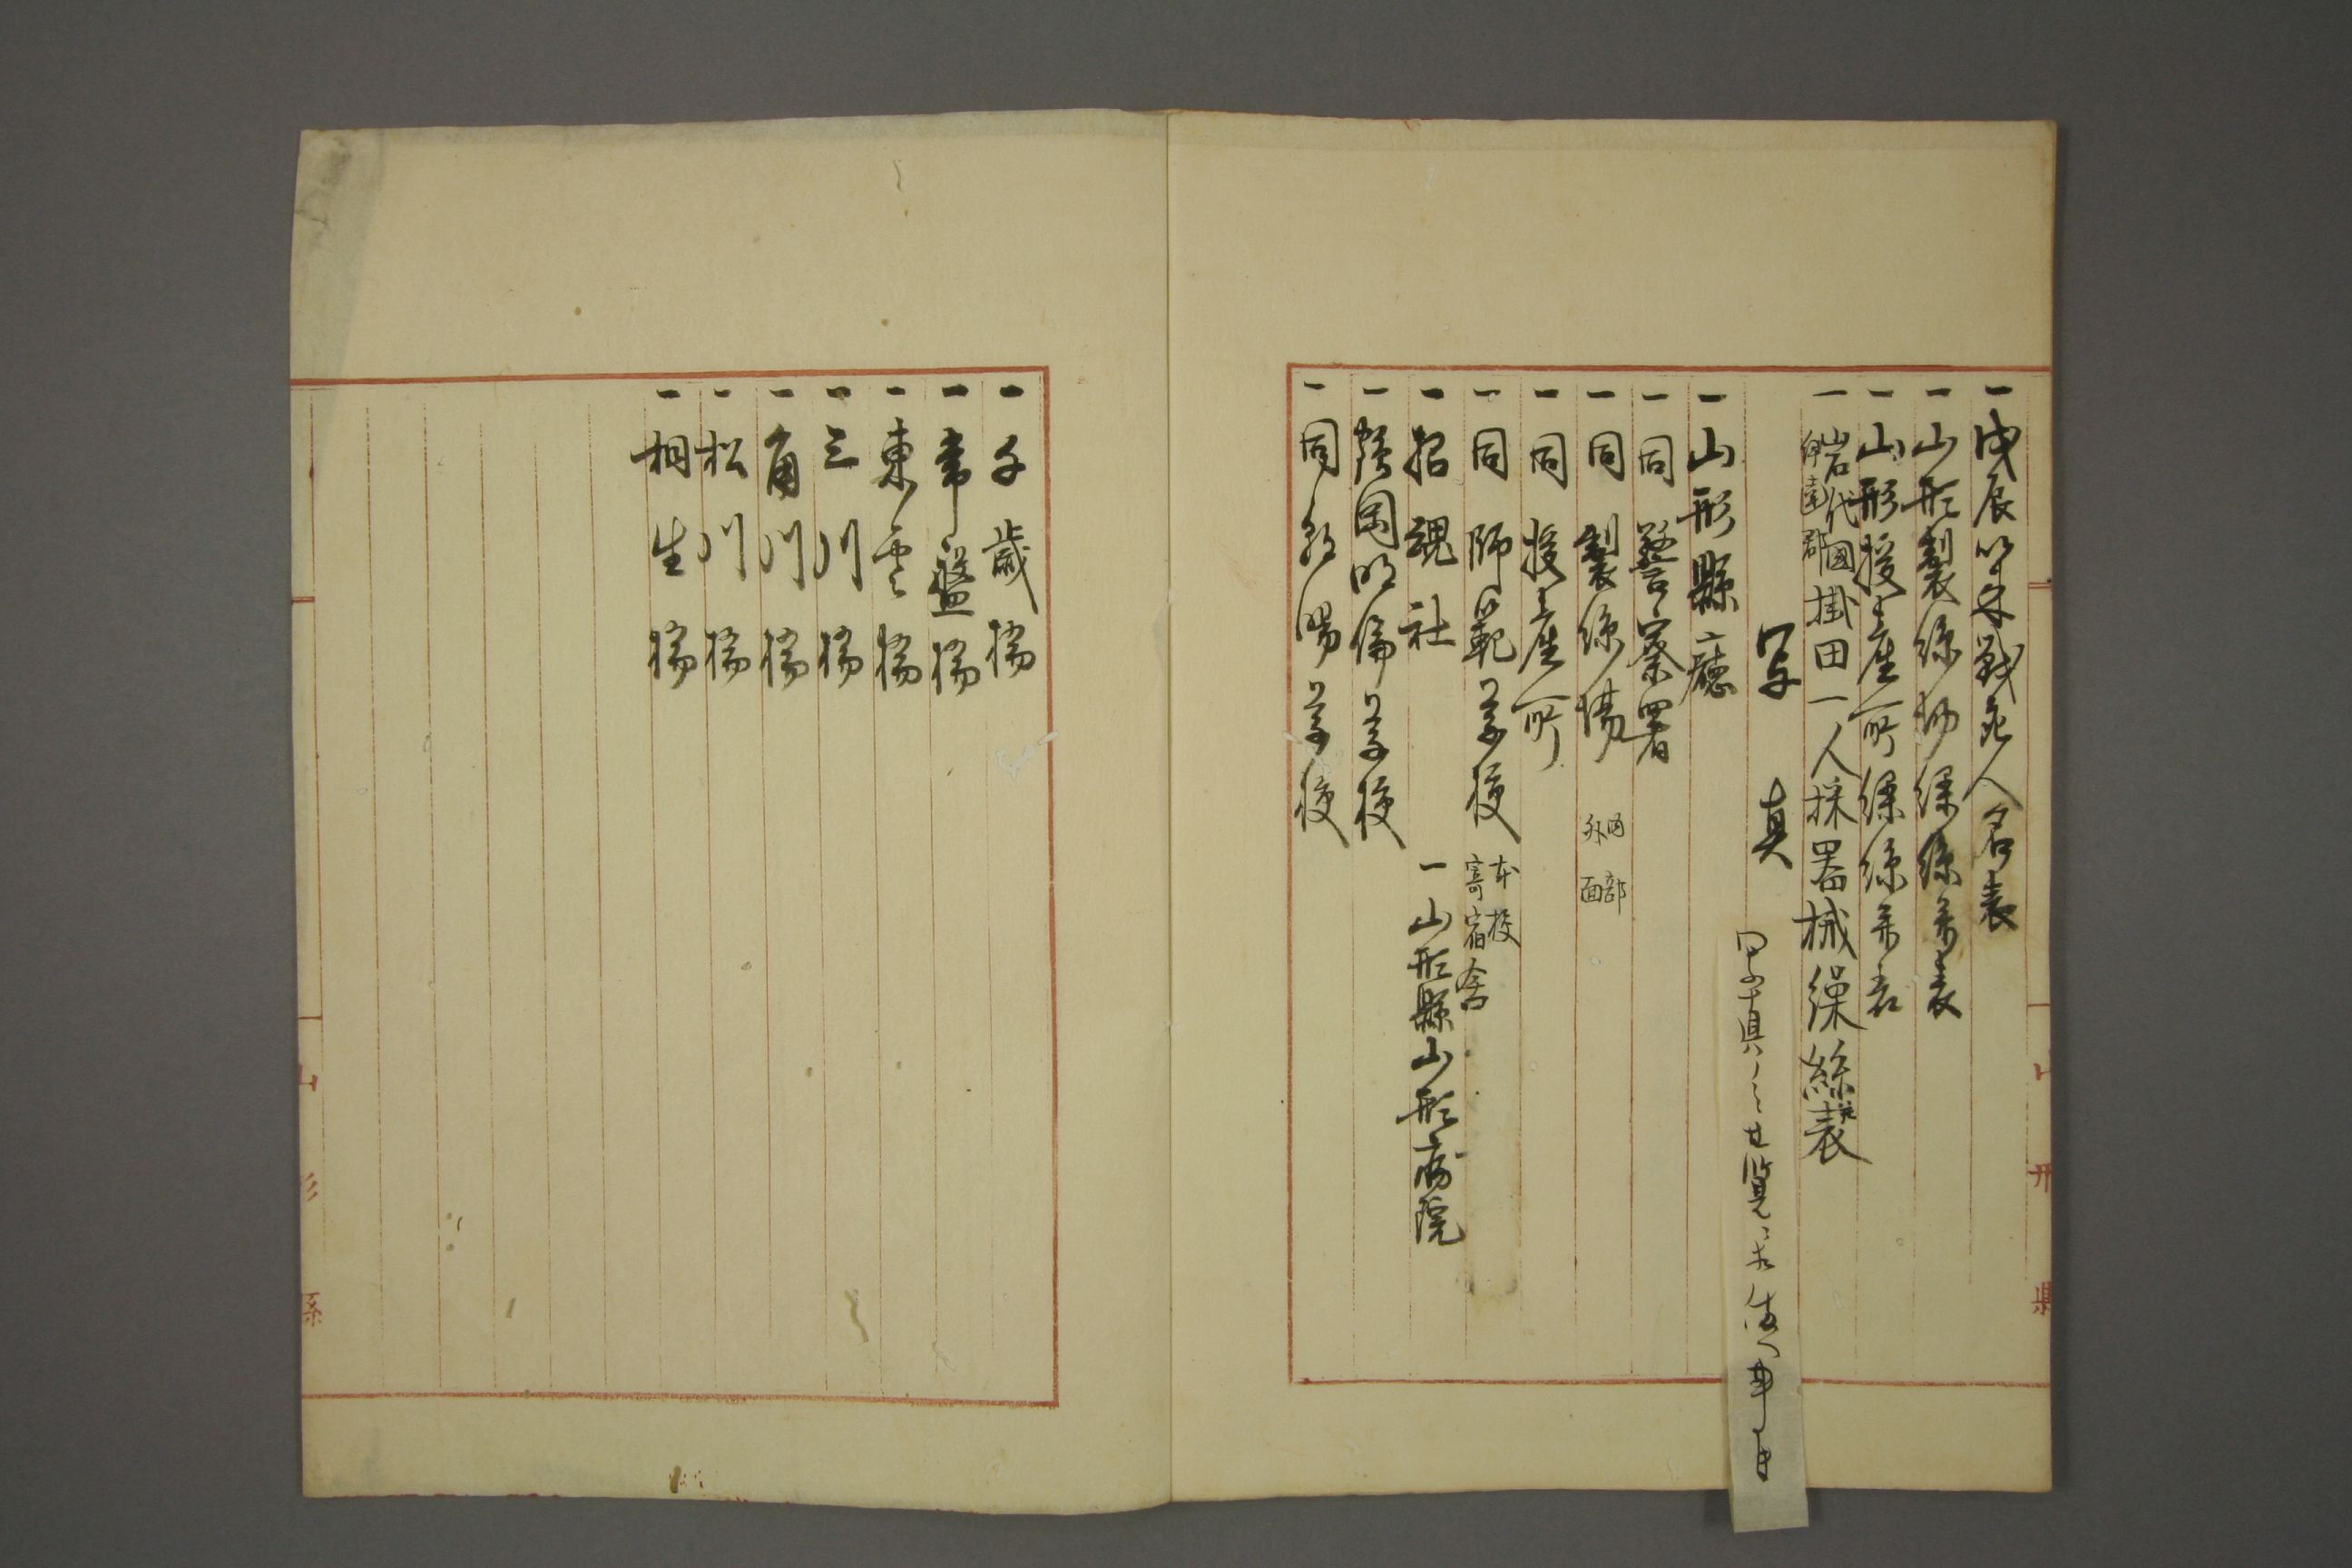 一戊辰以来戦死人名表
一山形製絲場繰絲等表
一山形授産所繰絲等表
一岩代國伊達郡掛田一人採器械繰絲表
写真
一山形縣廳
一同警察署
一同製絲場 内部 外面
一同授産所
一同師範学校 本校 寄宿舎
一招魂社
一山形縣山形病院
一鶴岡明倫学校
一同朝暘学校
一千歳橋
一常盤橋
一東雲橋
一三川橋
一角川橋
一松川橋
一相生橋
山形縣